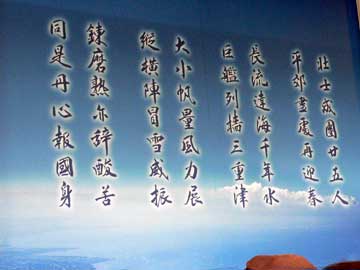 壯士成團廿五人
平郊晝處再迎春
長流遠海千年水
巨艦列檣三重津
大小帆量風力展
縱橫陣冒雪威振
鍊磨熟亦辞酸苦
同是丹心報國身